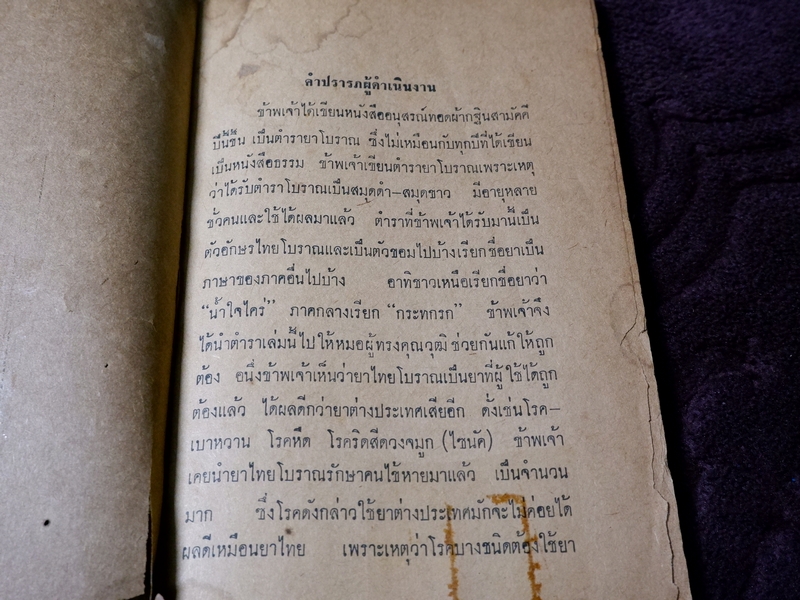 คำปรารภผู้ดำเนินงาน
ข้าพเจ้าได้เขียนหนังสืออนุสรณ์ทอดผ้ากฐินสามัคคี
ปีนี้ขึ้น เป็นตำรายาโบราณ ซึ่งไม่เหมือนกับทุกปีที่ได้เขียน
เป็นหนังสือธรรม ข้าพเจ้าเขียนตำรายาโบราณเพราะเหตุ
ว่าได้รับตำราโบราณเป็นสมุดดำ–สมุดขาว มีอายุหลาย
ชั่วคนและใช้ได้ผลมาแล้ว ตำราที่ข้าพเจ้าได้รับมานี้เป็น
ตัวอักษรไทยโบราณและเป็นตัวขอมไปบ้างเรียกชื่อยาเป็น
ภาษาของภาคอื่นไปบ้าง อาทิชาวเหนือเรียกชื่อยาว่า
“น้ำใจใคร่” ภาคกลางเรียก “กระทกรก” ข้าพเจ้าจึง
ได้นำตำราเล่มนี้ไปให้หมอผู้ทรงคุณวุฒิช่วยกันแก้ให้ถูก
ต้อง อนึ่งข้าพเจ้าเห็นว่ายาไทยโบราณเป็นยาที่ผู้ใช้ได้ถูก
ต้องแล้ว ได้ผลดีกว่ายาต่างประเทศเสียอีก ดั่งเช่นโรค–
เบาหวาน โรคหืด โรคริดสีดวงจมูก (ไซนัค) ข้าพเจ้า
เคยนำยาไทยโบราณรักษาคนไข้หายมาแล้ว เป็นจำนวน
มาก ซึ่งโรคดังกล่าวใช้ยาต่างประเทศมักจะไม่ค่อยได้
ผลดีเหมือนยาไทย เพราะเหตุว่าโรคบางชนิดต้องใช้ยา